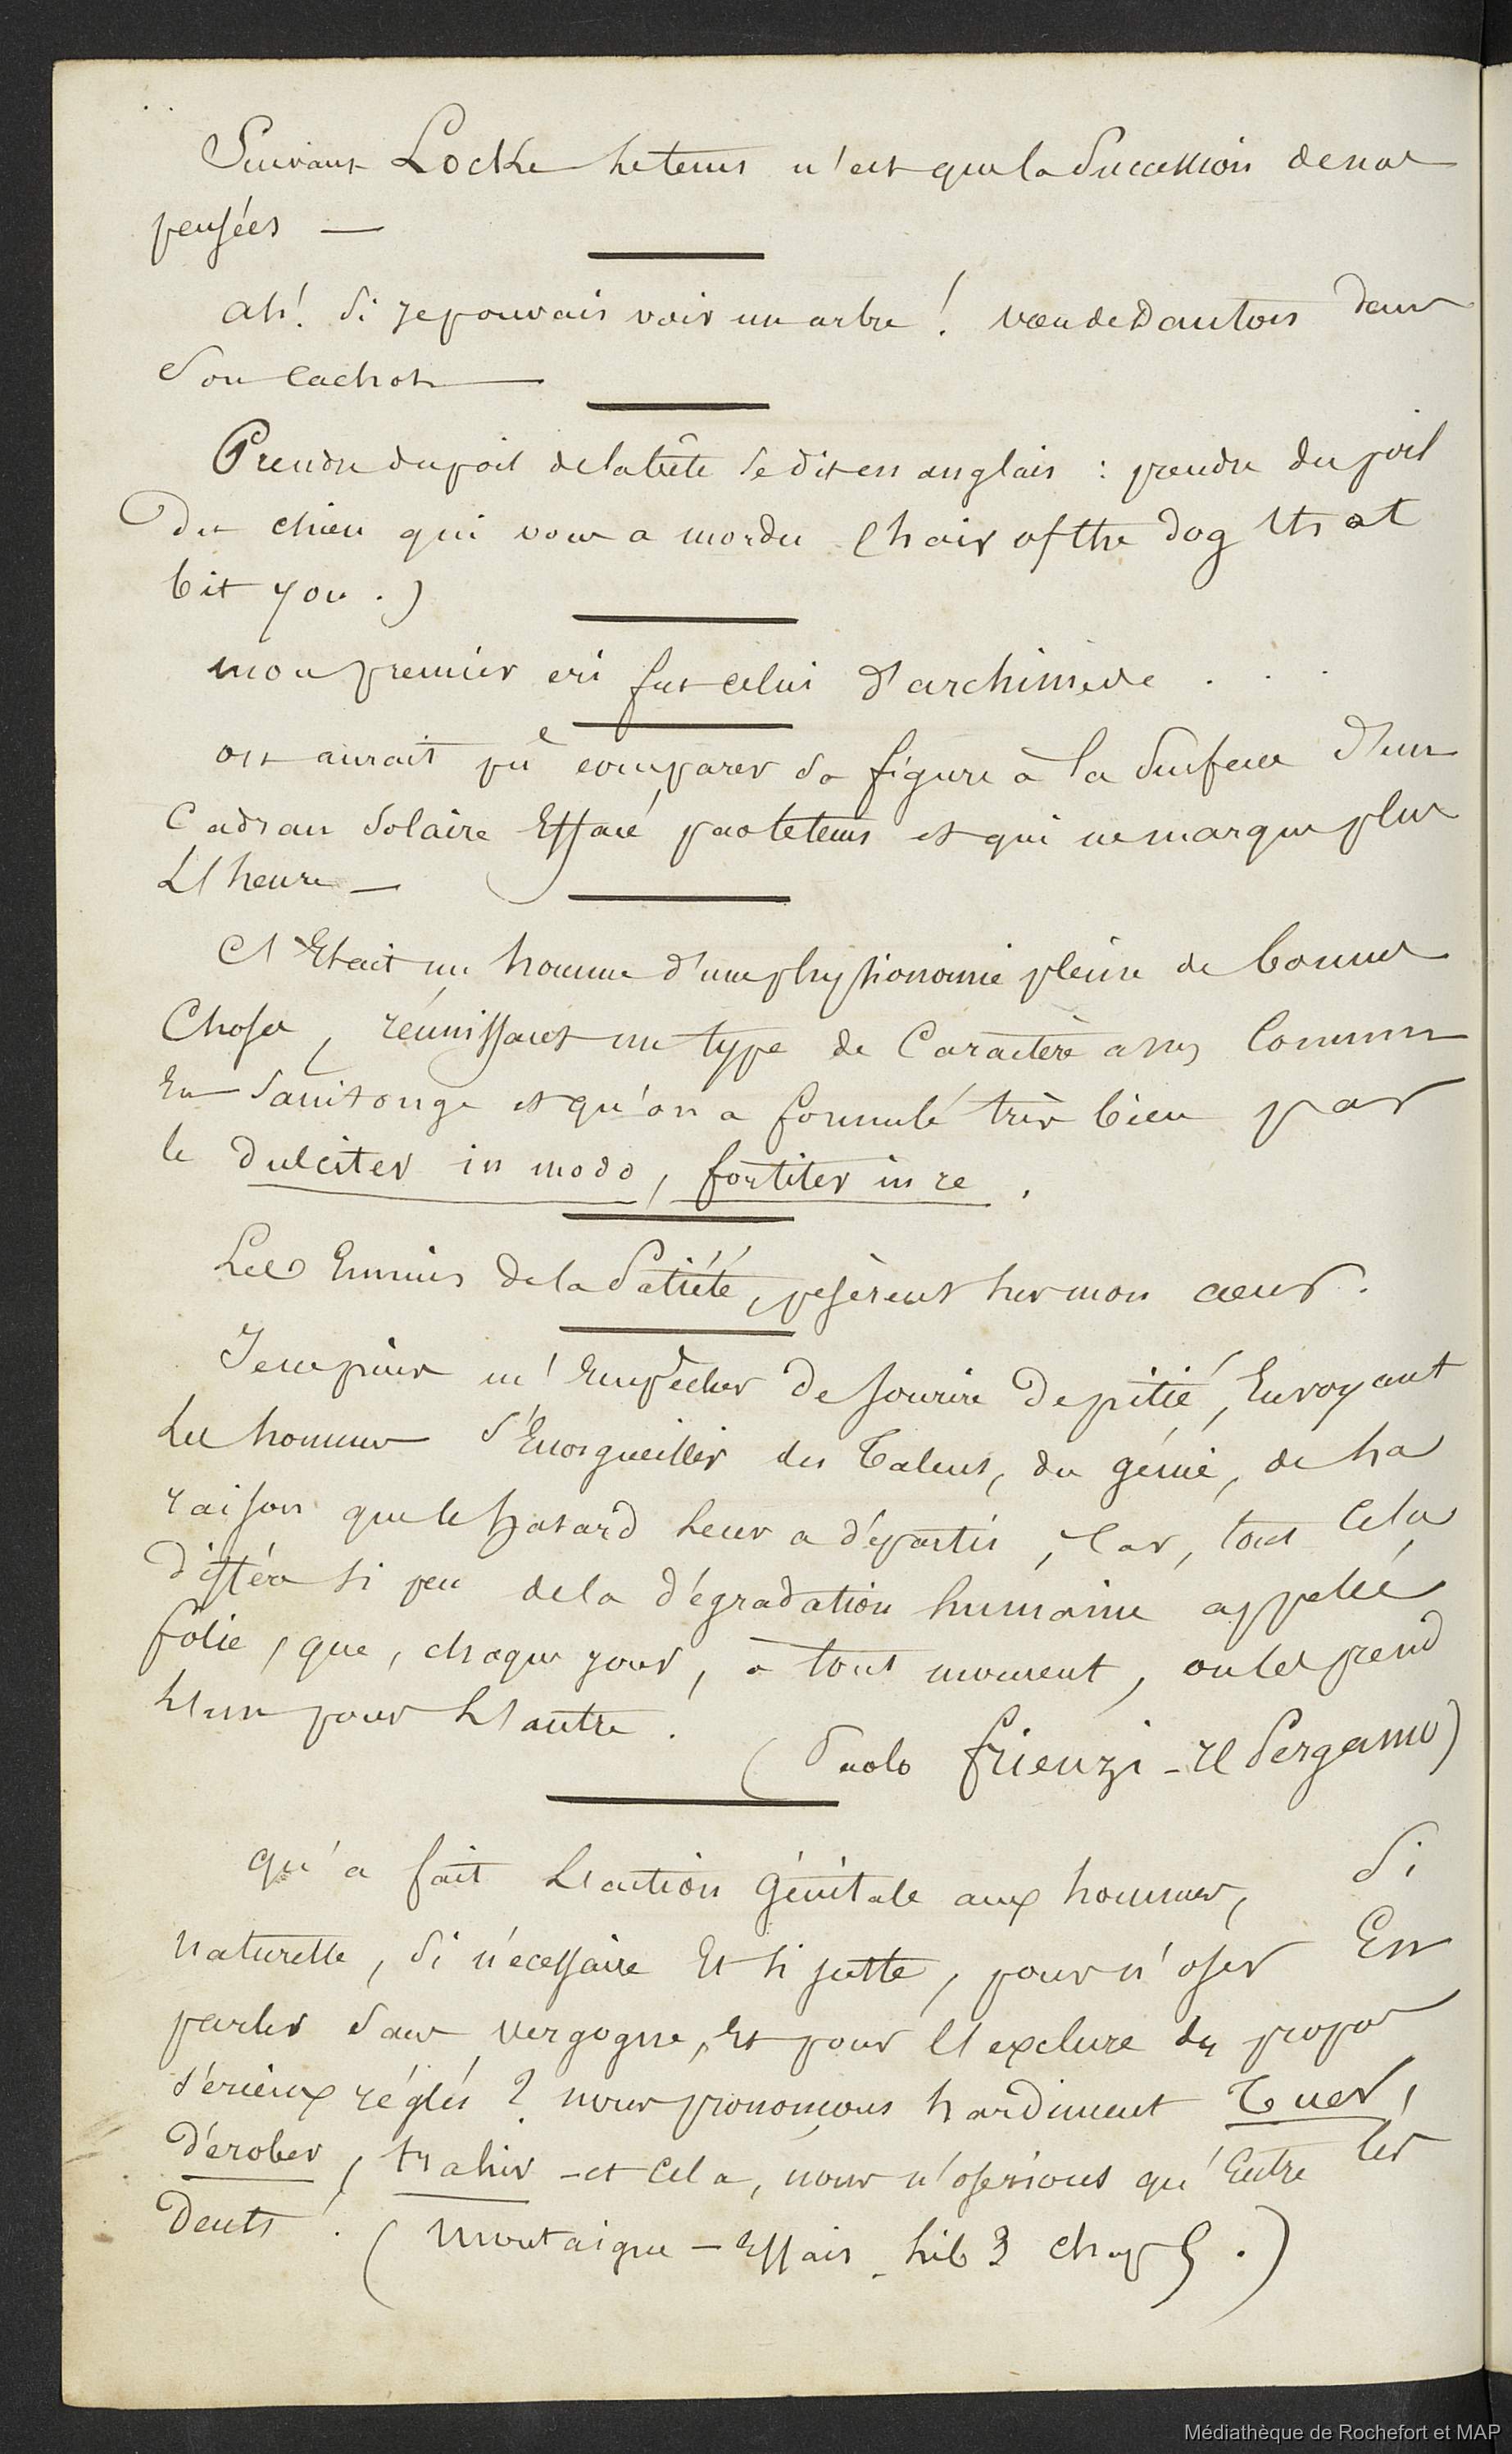 Suivant Locke le tems n'est que la Succession de nos
pensées —
ah! Si je pouvais voir un arbre! vœu de Danton dans
Son cachot —
Prendre du poil de la bête se dit en anglais : prendre du poil
Du chien qui vous a mordu (hair of the dog that
bit you.)
mon premier cri fut celui d'archimede . . .
on aurait pu comparer sa figure à la Surface d'un
Cadran Solaire Effacé par le tems et qui ne marque plus
L'heure —
C'Etait un homme d'une physionomie pleine de bonnes
Choses, réunissant un type de Caractère assez Commun
En Saintonge et qu'on a formulé très bien par
le dulciter in modo, fortiter in re .
Les Ennuis de la Satiété, pesèrent sur mon cœur.
Je ne puis m'Empêcher de sourire de pitié, En voyant
Les hommes S'Enorgueillir des Talens, du génie, de la
raison que le hasard Leur a départis, Car, tout Cela
diffère si peu de la dégradation humaine appelée
folie, que, chaque jour, à tout moment, on les prend
L'un pour L'autre.
(Paolo frienzi - Il Pergamo)
qu'a fait L'action génitale aux hommes, Si
naturelle, Si nécessaire Et si juste, pour n'oser En
parler Sans vergogne, Et pour L'exclure des propos
Sérieux réglés ? nous prononçons hardiment Tuer,
dérober, trahir - et Cela, nous n'oserions qu'Entre les
dents. (Montaigne — Essais - Lib 3 chap 5.)
Médiathèque de Rochefort et MAP